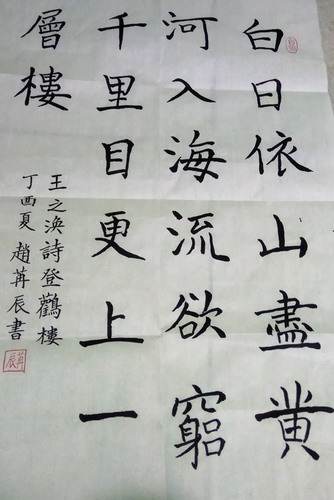 白日依山盡黄
河入海流欲窮
千里目更上一
層樓
王之渙詩登鸛樓
丁酉夏 趙苒辰書
苒辰